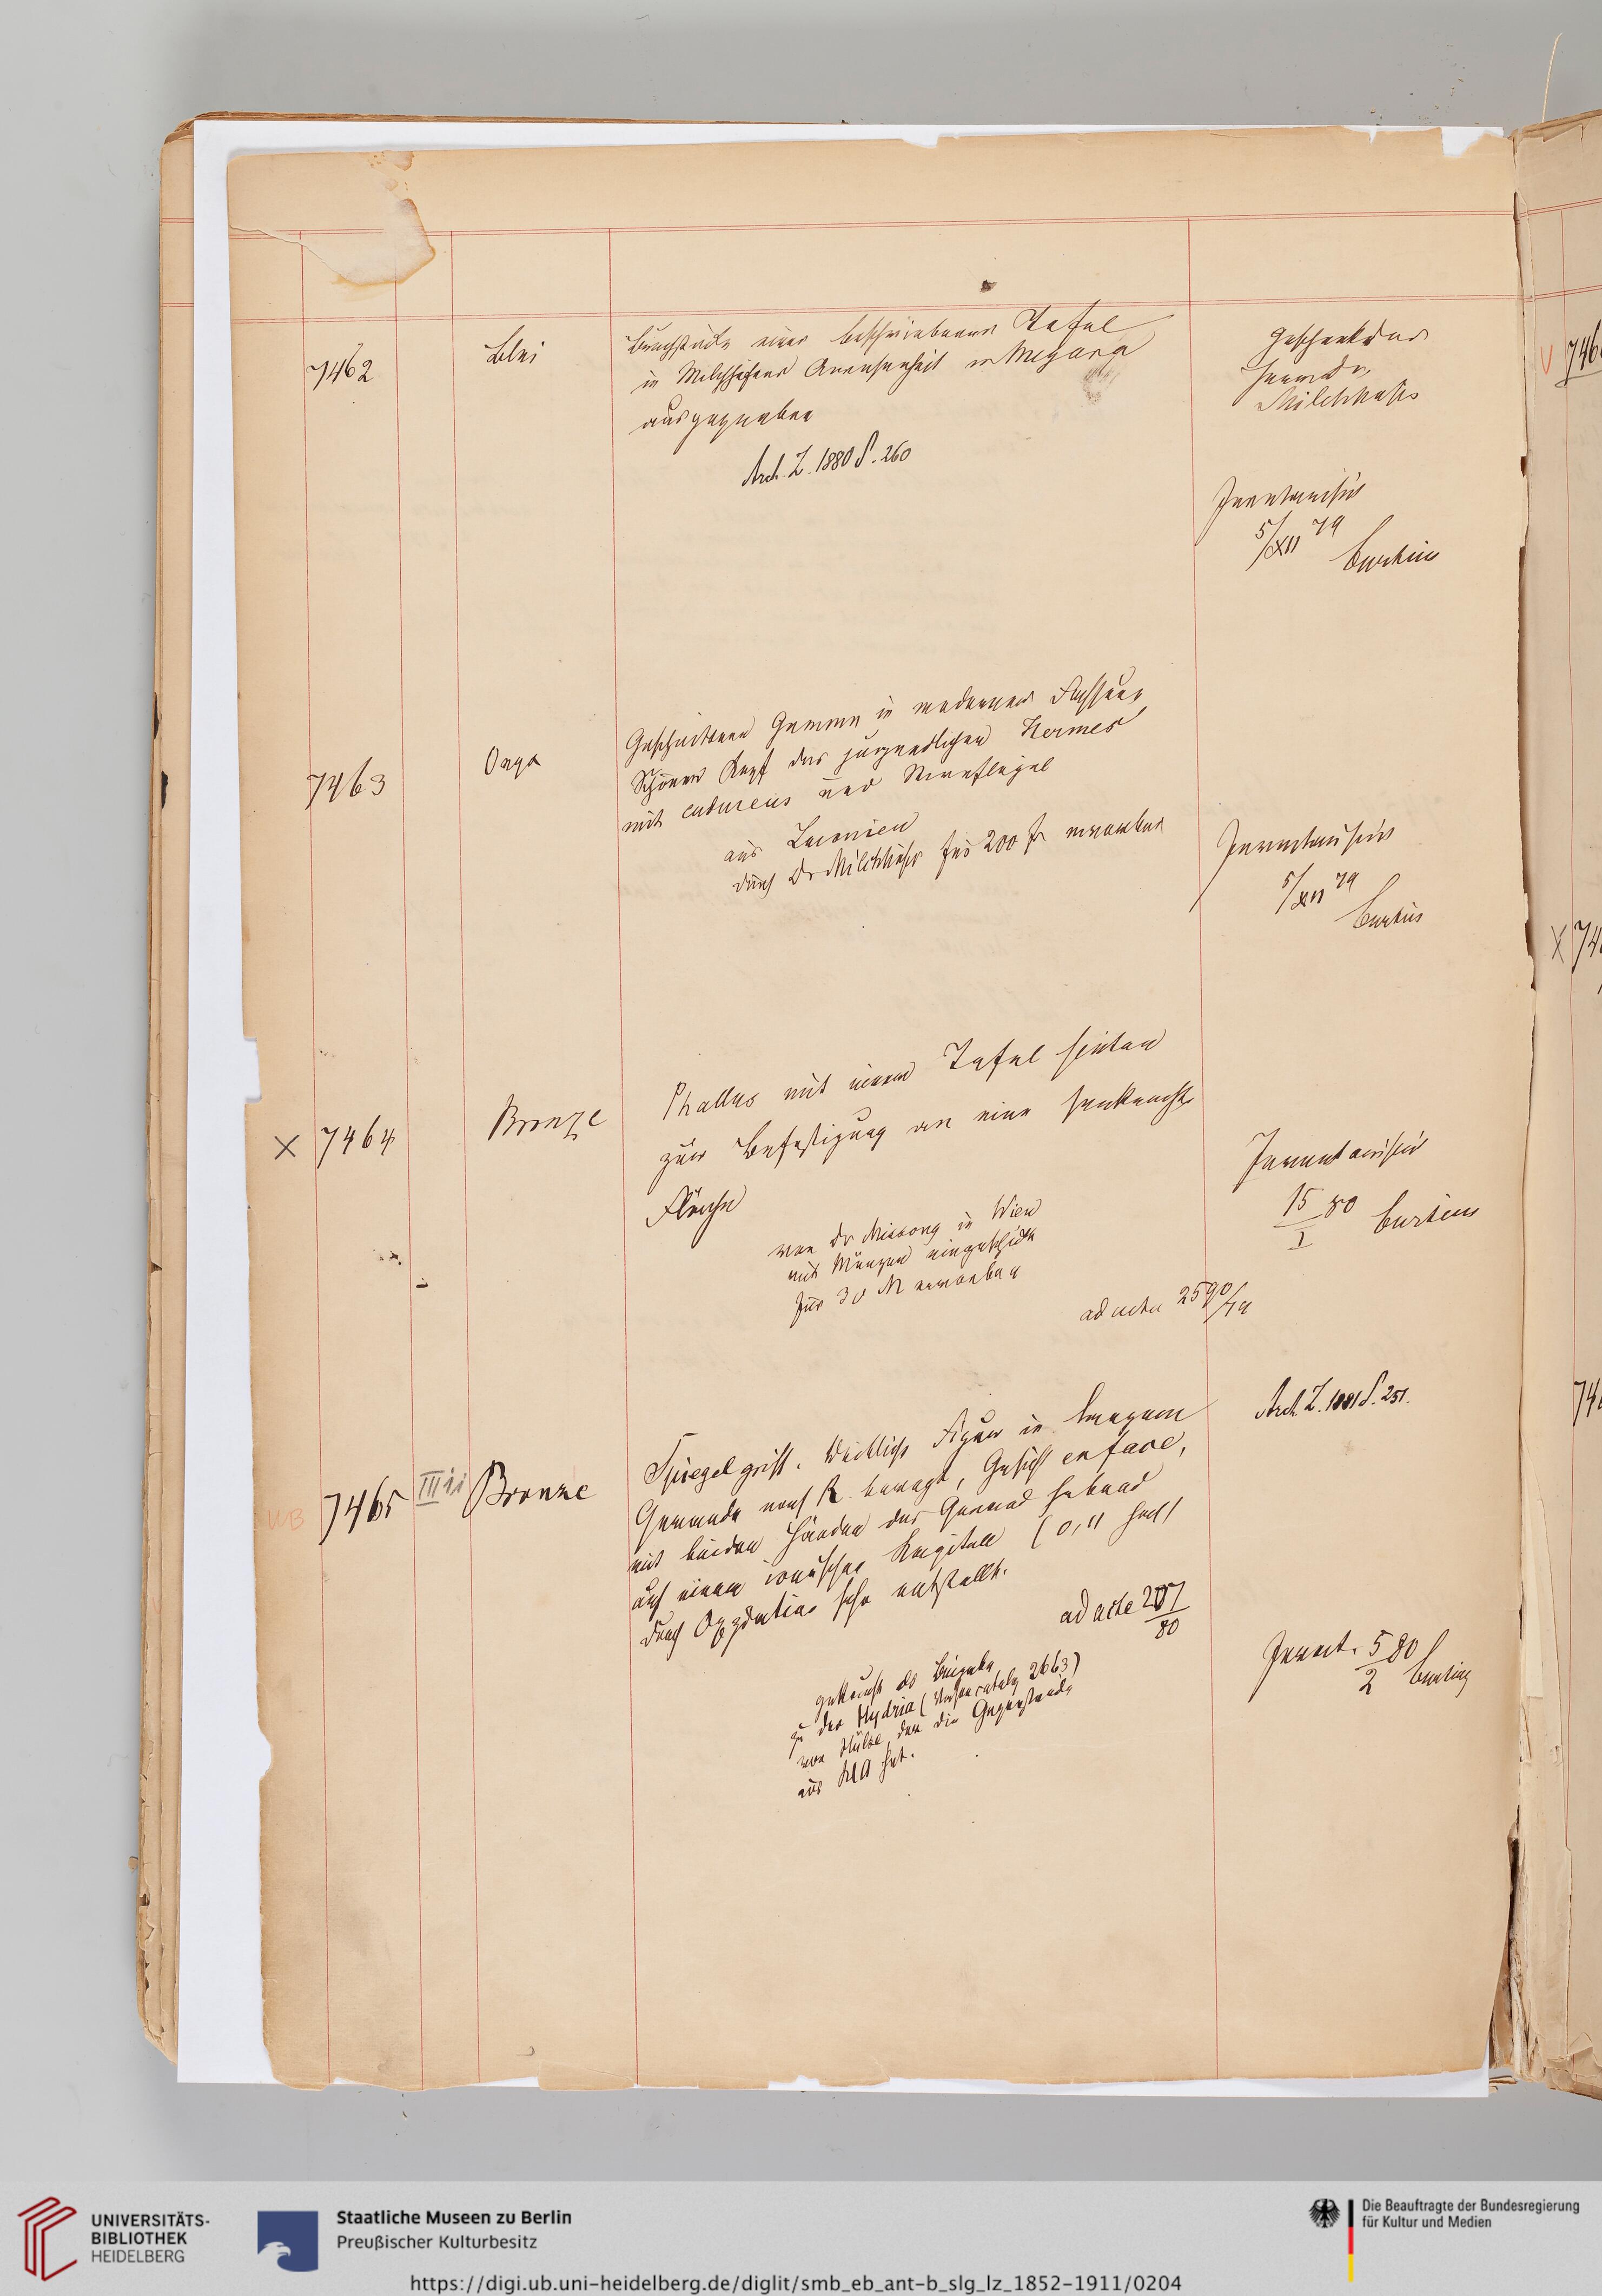 7462
Blei
Bruchstücke einer beschriebenen Tafel
in Milchhöfers Anwesenheit in Megara
ausgegraben
Arch. Z. 1880 S. 260
Geschenk des
Herrn Dr.
Milchhöfer
Inventarisirt
5/XII 79
Curtius
7463
Onyx
Geschnittene Gemme in moderner Fassung
Schöner Kopf des jugendlichen Hermes
mit caduceus und Stirnflügel
aus Laconien
durch Dr Milchhöfer für 200 fr erworben
Inventarisirt
5/XII 79
Curtius
X 7464
Bronze
Phallus mit einer Tafel hinten
zur Befestigung an eine senkrechte
Fläche
von Dr Missong in Wien
mit Münzen eingeschickt
für 30 M erworben
ad acta 2590/79
Inventarisirt
15/I 80 Curtius
Arch. Z. 1881 S. 251.
7465
III ii
Bronze
Spiegelgriff. Weibliche Figur in langem
Gewande nach R. bewegt, Gesicht en face,
mit beiden Händen das Gewand hebend
auf einem ionischen Kapitell (0,11 hoch)
durch Oxydation sehr entstellt.
ad acta 207/80
gekauft als Beigabe
zu der Hydria (Vasencatalog 2663)
von Hülse, der die Gegenstände
aus hat.
Invent. 5/2 80
Curtius
V 746
X 74
74
UNIVERSITÄTS-
BIBLIOTHEK
HEIDELBERG
Staatliche Museen zu Berlin
Preußischer Kulturbesitz
Die Beauftragte der Bundesregierung
für Kultur und Medien
https://digi.ub.uni-heidelberg.de/diglit/smb_eb_ant-b_slg_lz_1852-1911/0204